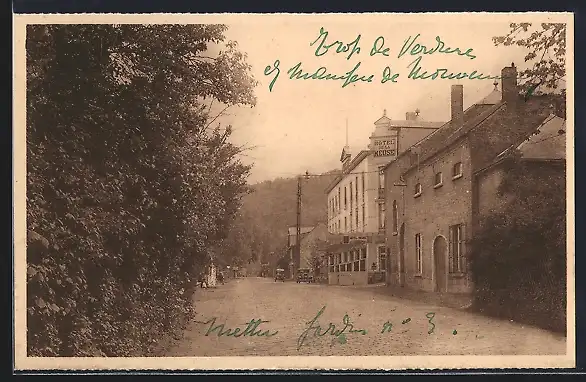 Trop de Verdure
et manque de Mouvem
HOTEL
DE LA
MEUSE
Mettre Jardin n° 3.